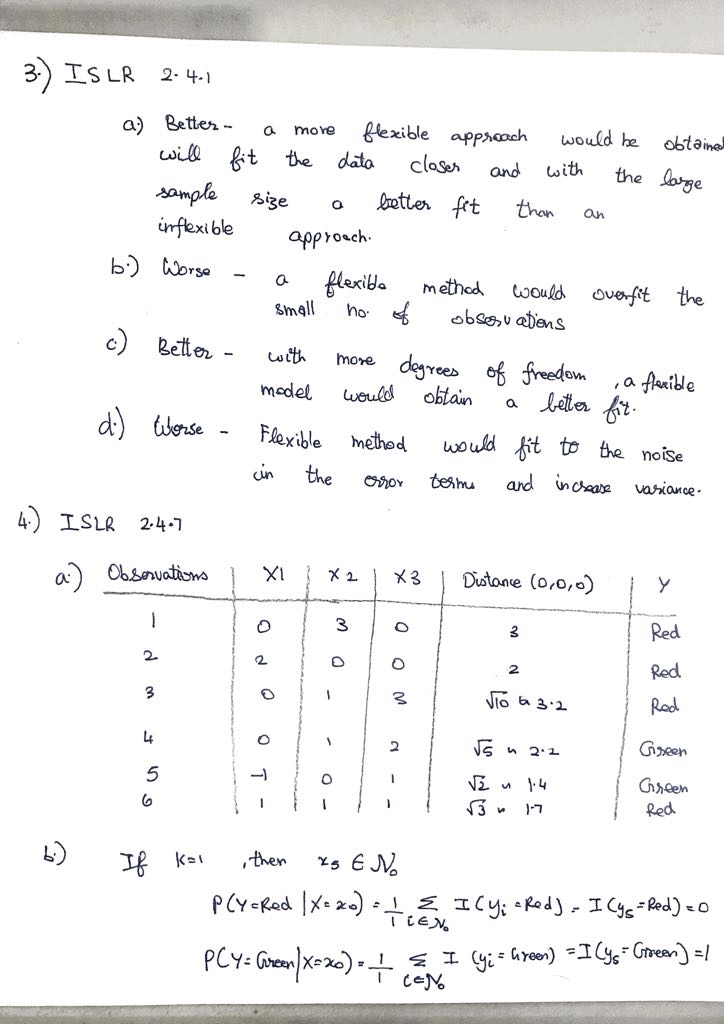 3.) ISLR 2.4.1
a.) Better - a more flexible approach would be obtained
will fit the data closer and with the large
sample size a better fit than an
inflexible approach.
b.) Worse - a flexible method would overfit the
small no. of observations
c.) Better - with more degrees of freedom, a flexible
model would obtain a better fit.
d.) Worse - Flexible method would fit to the noise
in the error terms and increase variance.
4.) ISLR 2.4.7
a.) Observations | X1 | X2 | X3 | Distance (0,0,0) | Y
1 0 3 0 3 Red
2 2 0 0 2 Red
3 0 1 3 √10 ≈ 3.2 Red
4 0 1 2 √5 ≈ 2.2 Green
5 -1 0 1 √2 ≈ 1.4 Green
6 1 1 1 √3 ≈ 1.7 Red
b.) If K=1, then x5 ∈ N₀
P(Y=Red | X=x₀) = 1/1 Σ i∈N₀ I(yᵢ = Red) = I(y₅ = Red) = 0
P(Y=Green | X=x₀) = 1/1 Σ i∈N₀ I(yᵢ = Green) = I(y₅ = Green) = 1